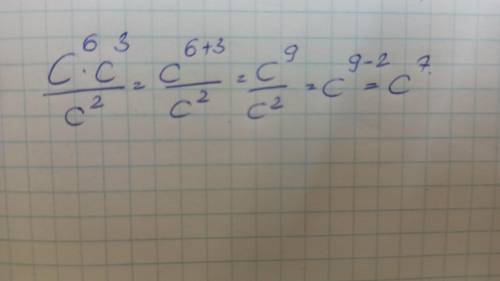 $\frac{C^6 \cdot C^3}{C^2} = \frac{C^{6+3}}{C^2} = \frac{C^9}{C^2} = C^{9-2} = C^7$